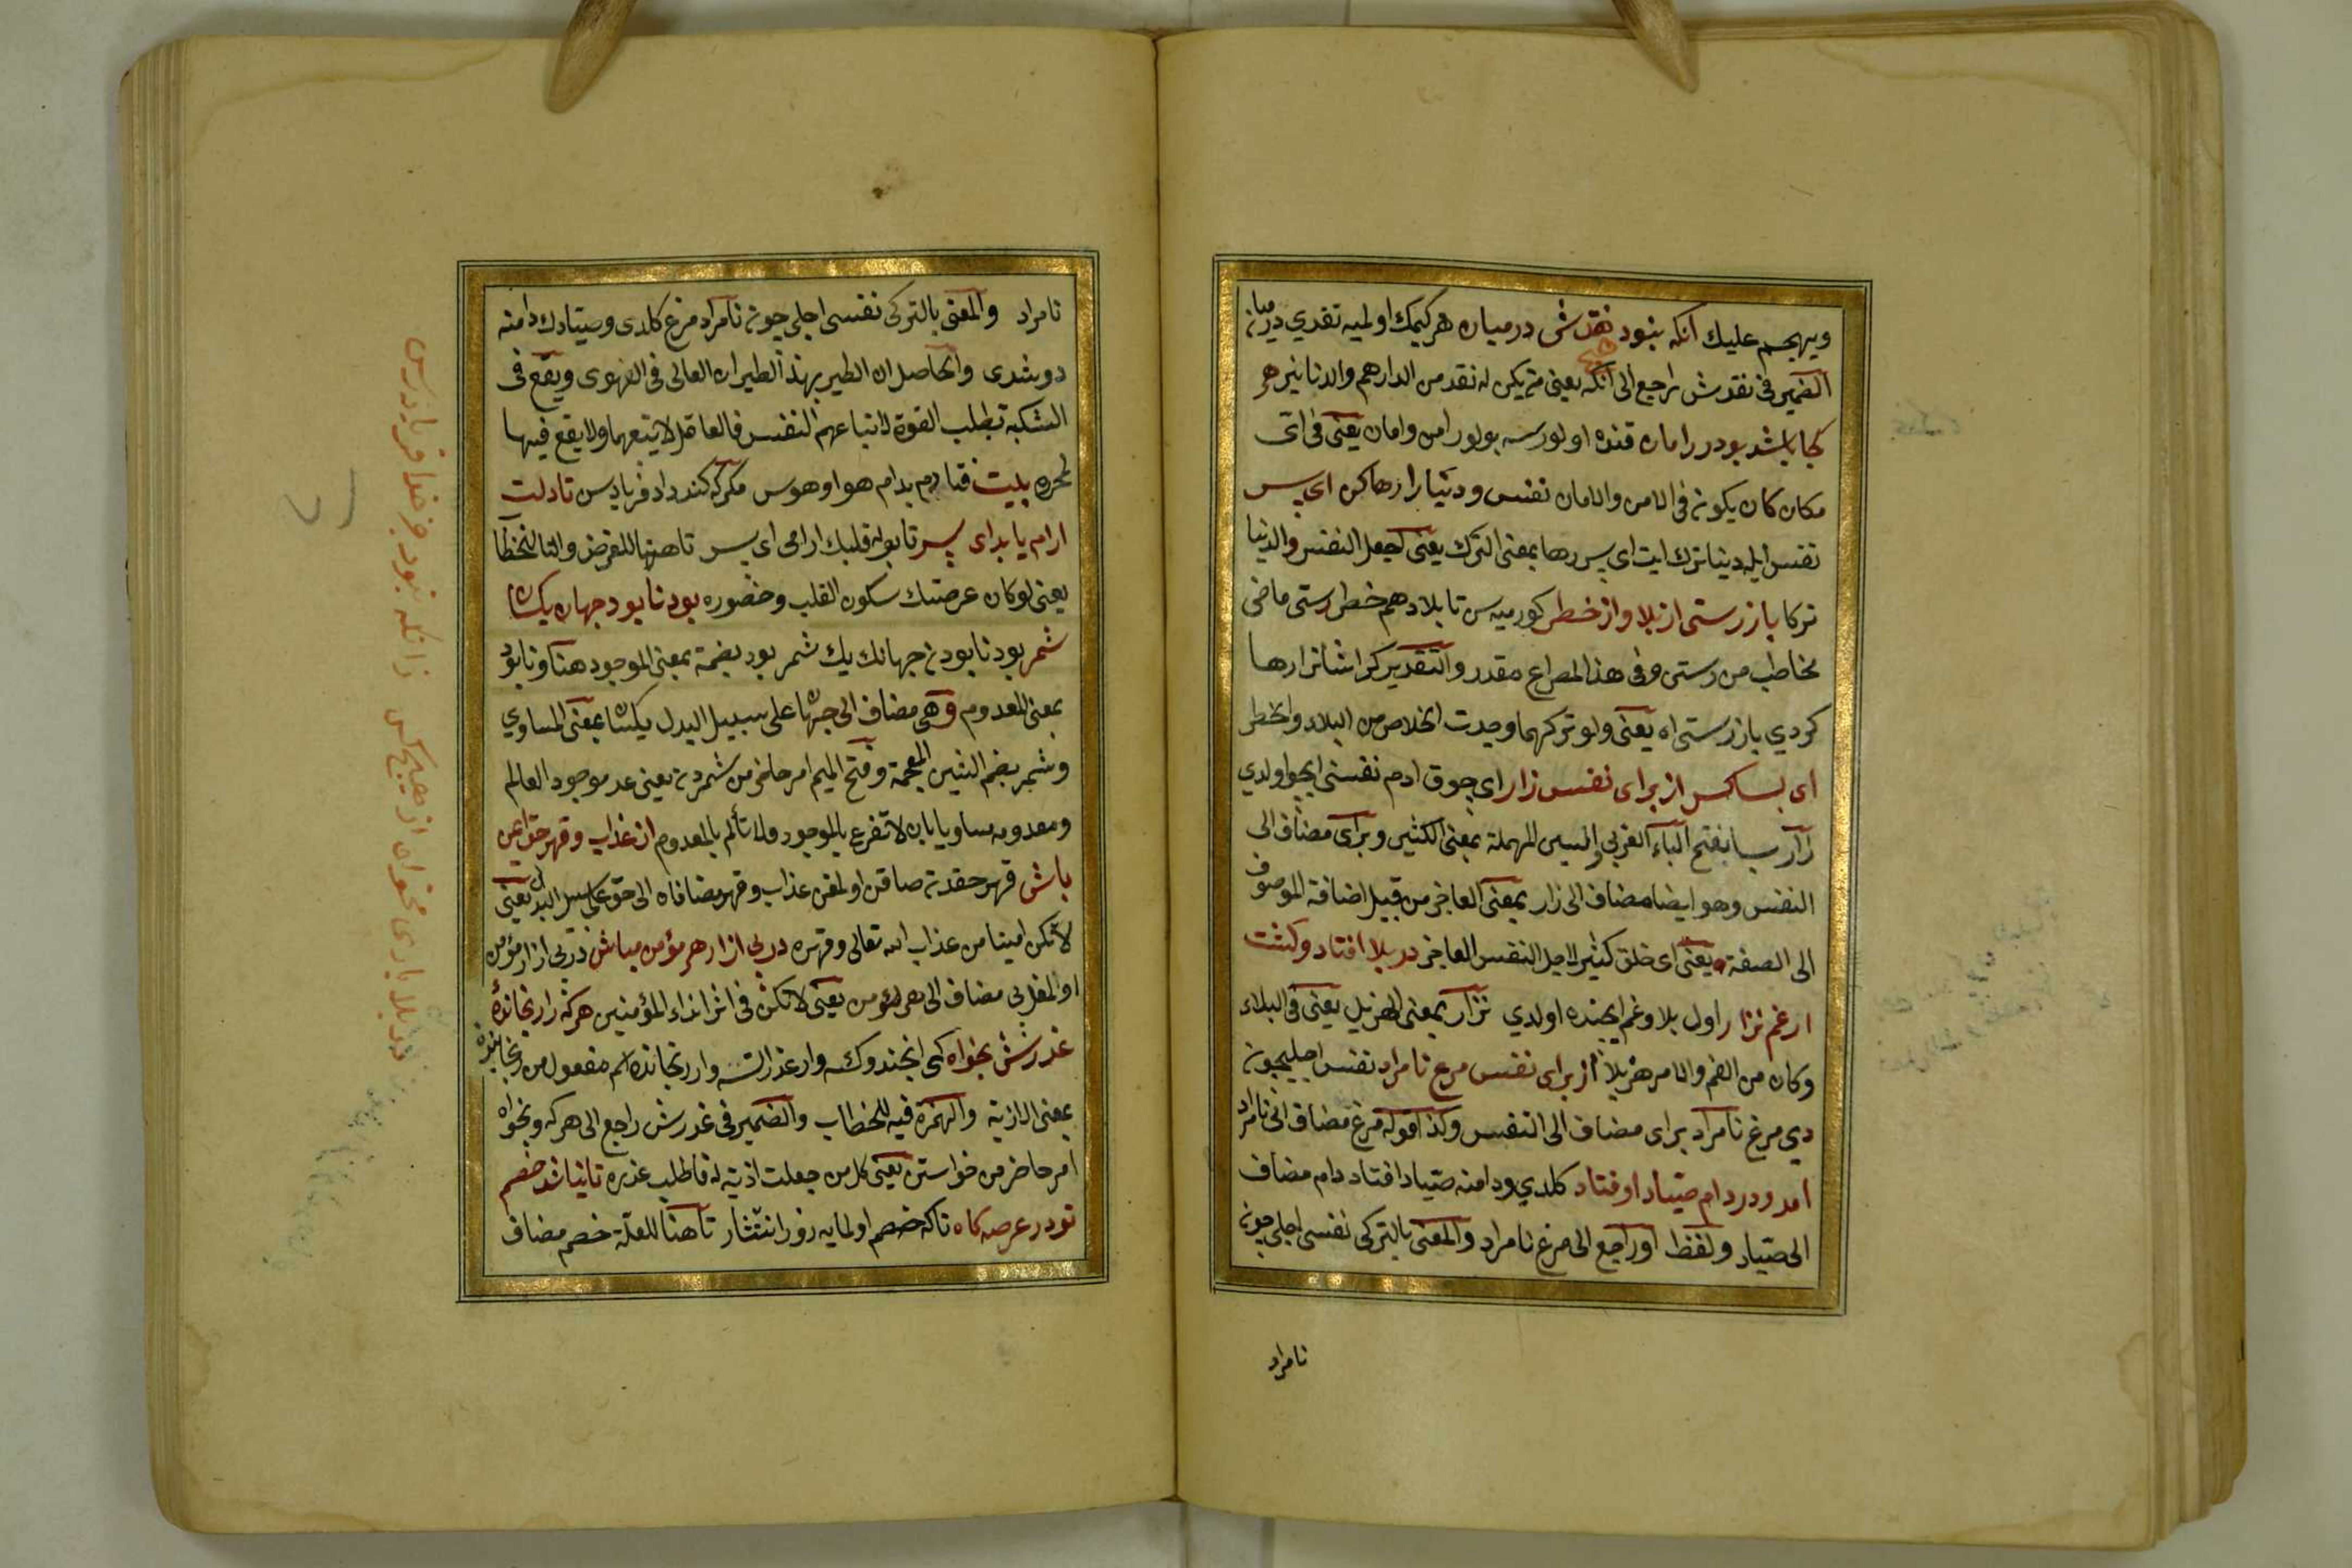 ويهجم عليك آنكه نبود نقدش درميان هر كيمك اولميه نقدي درميان
الضمير فى نقدش راجع الى آنكه يعنى من يكن له نقد من الدارهم والدنانير هر
كجا باشد بود در امان قنده اولورسه بولور امن وامان يعنى فى اى
مكان كان يكون فى الامن والامان نفس ودنيا را رها كن اى پسر
نفس ايله دنيا ترك ايت اى پسر رها بمعنى الترك يعنى اجعل النفس والدنيا
تركا باز رستى از بلا واز خطر كورميه سن تا بلا دهم خطر رستى ماضى
مخاطب من رستن وفى هذا المصراع مقدر والتقدير كر ايشانرا رها
كردي باز رستى اه يعنى ولو تركهما وجدت الخلاص من البلاد والخطر
اى بسا كس از براى نفس زار اى چوق ادم نفسنى ايچو اولدي
زار بسا بفتح الباء العربى والسين المهملة بمعنى الكثير وبراى مضاف الى
النفس وهو ايضا مضاف الى زار بمعنى العاجز من قبيل اضافة الموصوف
الى الصفة يعنى اى خلق كثير لاجل النفس العاجز در بلا افتاد وكشت
از غم نزار اول بلا وغم ايچنده اولدي نزار بمعنى الهزيل يعنى فى البلاء
وكان من الغم والامر هزيلا از براى نفس مرغ نامراد نفس اجليچون
دي مرغ نامراد براى مضاف الى النفس وكذا قوله مرغ مضاف الى نامراد
امد ودر دام صياد اوفتاد كلدي ودامنه صياد افتاد دام مضاف
الى صياد ولفظ او راجع الى مرغ نامراد والمعنى بالتركى نفسى اجلى چون
نامراد
نامراد والمعنى بالتركى نفسى اجلى چون نامراد مرغ كلدى وصيادك دامنه
دوشدى والحاصل ان الطير بهذ الطيران العالى فى الهوى ويقع فى
الشبكة بطلب القوة لاتباعهم النفس فالعاقل لا يتبعهما ولا يقع فيها
لمحرره بيت فتادم بدام هوا وهوس مكر كه كند داد فريادس تا دلت
ارام يابد اى پسر تا بوله قلبك ارامى اى پسر تا هنها للغرض والتا للخطا
يعنى لو كان عرضك سكون القلب وحضوره بود نابود جهان يكسان
شمر بود نابودن جهانك يك شمر بود بضمة بمعنى الموجود هنا ونابود
بمعنى المعدوم وهى مضاف الى جهان على سبيل البدل يكسان بمعنى المساوي
وشمر بضم الشين المعجمة وفتح الميم امر حاضر من شمردن يعنى عد موجود العالم
ومعدومه مساويا بان لا تفرح بالموجود ولا تألم بالمعدوم از عذاب وقهر حق ايمن
باش قهر حقدن صاقن اولمغن عذاب وقهر مضافاه الى حق على سبيل البدل يعنى
لا تكن امينا من عذاب الله تعالى وقهره در پى ازار هر مؤمن مباش در پى ازار مؤمن
اولمغل پى مضاف الى هر مؤمن يعنى لا تكن فى اثر اذاء المؤمنين هر كه را رنجانده
عذرش بخواه كمى انجندوك سه وار عذر اتسه وار رنجانده اسم مفعول من رنجانيدن
بمعنى الاذية والهمزة فيه للخطاب والضمير فى عذرش راجع الى هر كه وبخواه
امر حاضر من خواستن يعنى كل من جعلت اذية له فاطلب عذره تا نيابد خصم
تو در عرصه كاه تا كه خصم اولمايه روز انتشار تا هنا للعلة خصم مضاف
در بلا يارى مخواه از هيچ كس زانكه نبود جز خدا فرياد رس